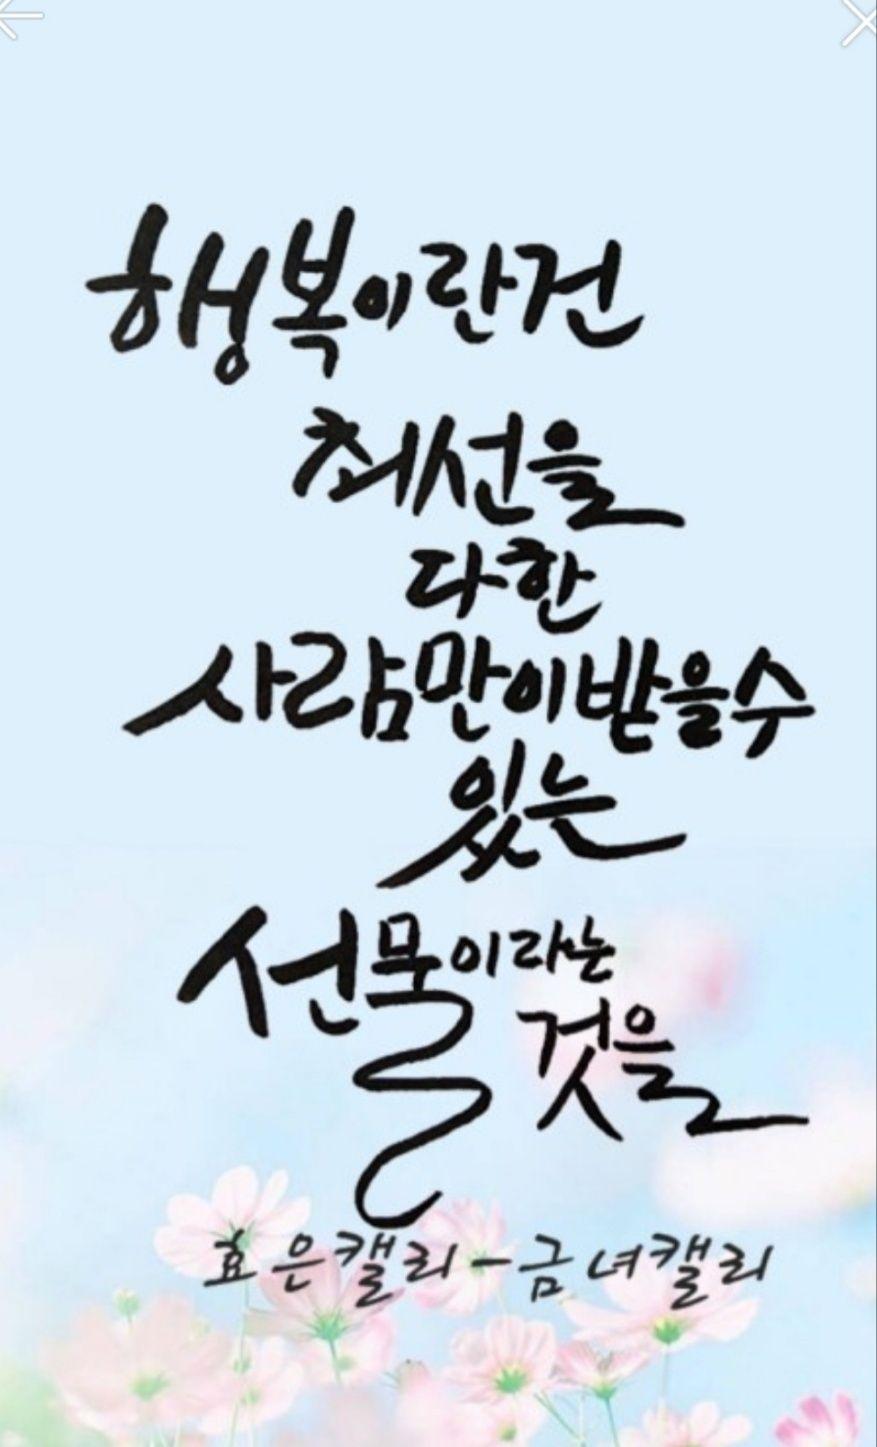 행복이란건
최선을
다한
사람만이받을수
있는
선물이라는
것을
효은캘리-금녀캘리